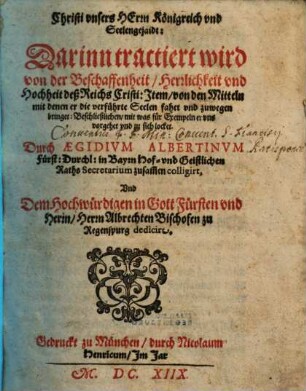 Christi vnsers HErrn Königreich vnd
Seelengejaidt:
Darinn tractiert wird
von der Beschaffenheit / Herrlichkeit vnd
Hochheit deß Reichs Cristi: Item / von den Mitteln
mit denen er die verführte Seelen fahet vnd zuwegen
bringet: Beschließlichen / mit was für Exempeln er vns
vorgehet vnd zu sich locket.
Durch ÆGIDIVM ALBERTINVM
Fürst: Durchl: in Bayrn Hof- vnd Geistlichen
Raths Secretarium zusam̃en colligirt,
Vnd
Dem Hochwürdigen in Gott Fürsten vnd
Herrn / Herrn Albrechten Bischofen zu
Regenspurg dedicirt.
Gedruckt zu München / durch Nicolaum
Henricum / Im Jar
M. DC. XIIX.